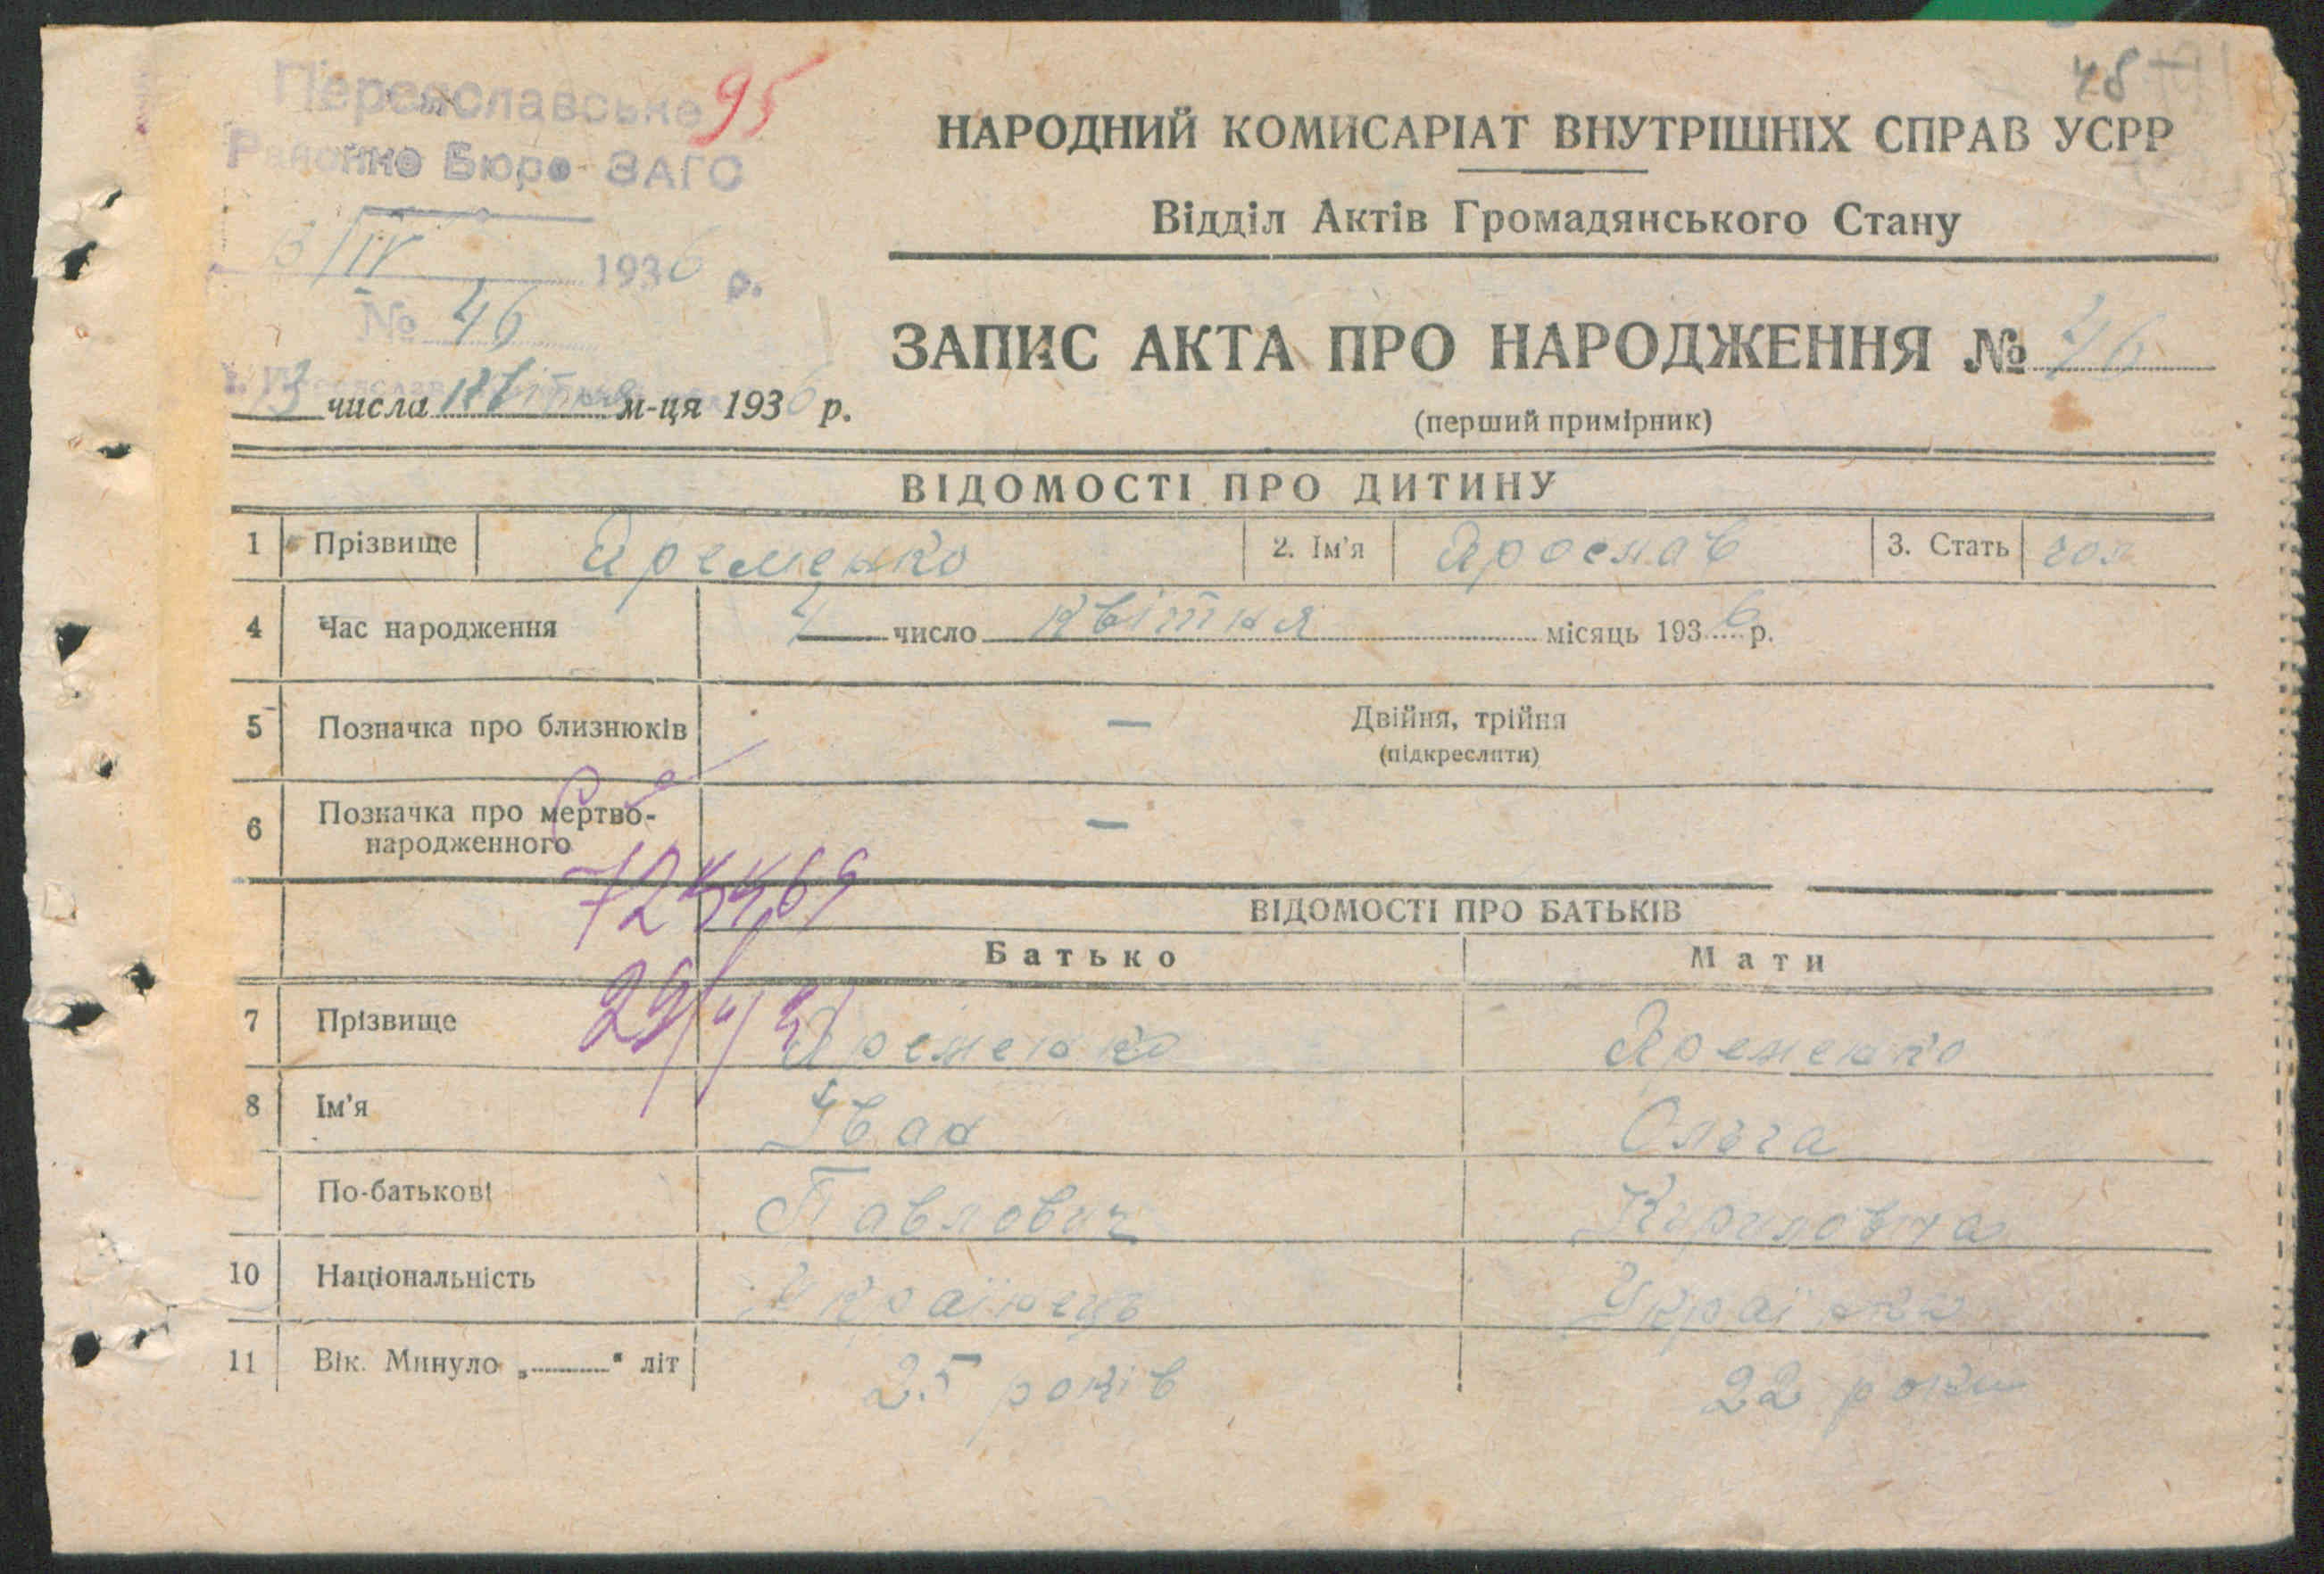 Переяславське 95
Районне Бюро ЗАГС
13/IV 1936 р.
№ 46
48
НАРОДНИЙ КОМИСАРІАТ ВНУТРІШНІХ СПРАВ УСРР
Відділ Актів Громадянського Стану
ЗАПИС АКТА ПРО НАРОДЖЕННЯ № 46
13 числа квітня м-ця 1936 р.
(перший примірник)
ВІДОМОСТІ ПРО ДИТИНУ
1 Прізвище Яременко 2. Ім'я Ярослав 3. Стать чол
4 Час народження 4 число квітня місяць 1936 р.
5 Позначка про близнюків — Двійня, трійня
(підкреслити)
6 Позначка про мертво-
народженного —
ВІДОМОСТІ ПРО БАТЬКІВ
Батько Мати
7 Прізвище Яременко Яременко
8 Ім'я Іван Ольга
По-батькові Павлович Кириловна
10 Національність Українець Українка
11 Вік. Минуло „ “ літ 25 років 22 роки